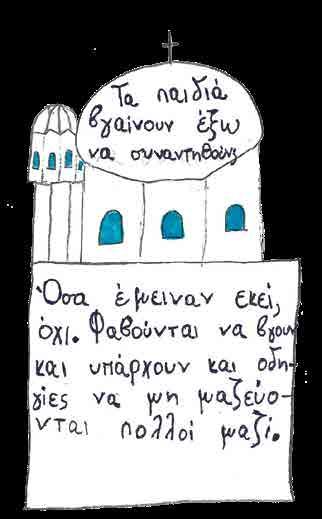 Τα παιδιά
βγαίνουν έξω
να συναντηθούνε
Όσα έμειναν εκεί,
όχι. Φαβούνται να βγουν
και υπάρχουν και οδη-
γίες να μη μαζεύο-
νται πολλοί μαζί.